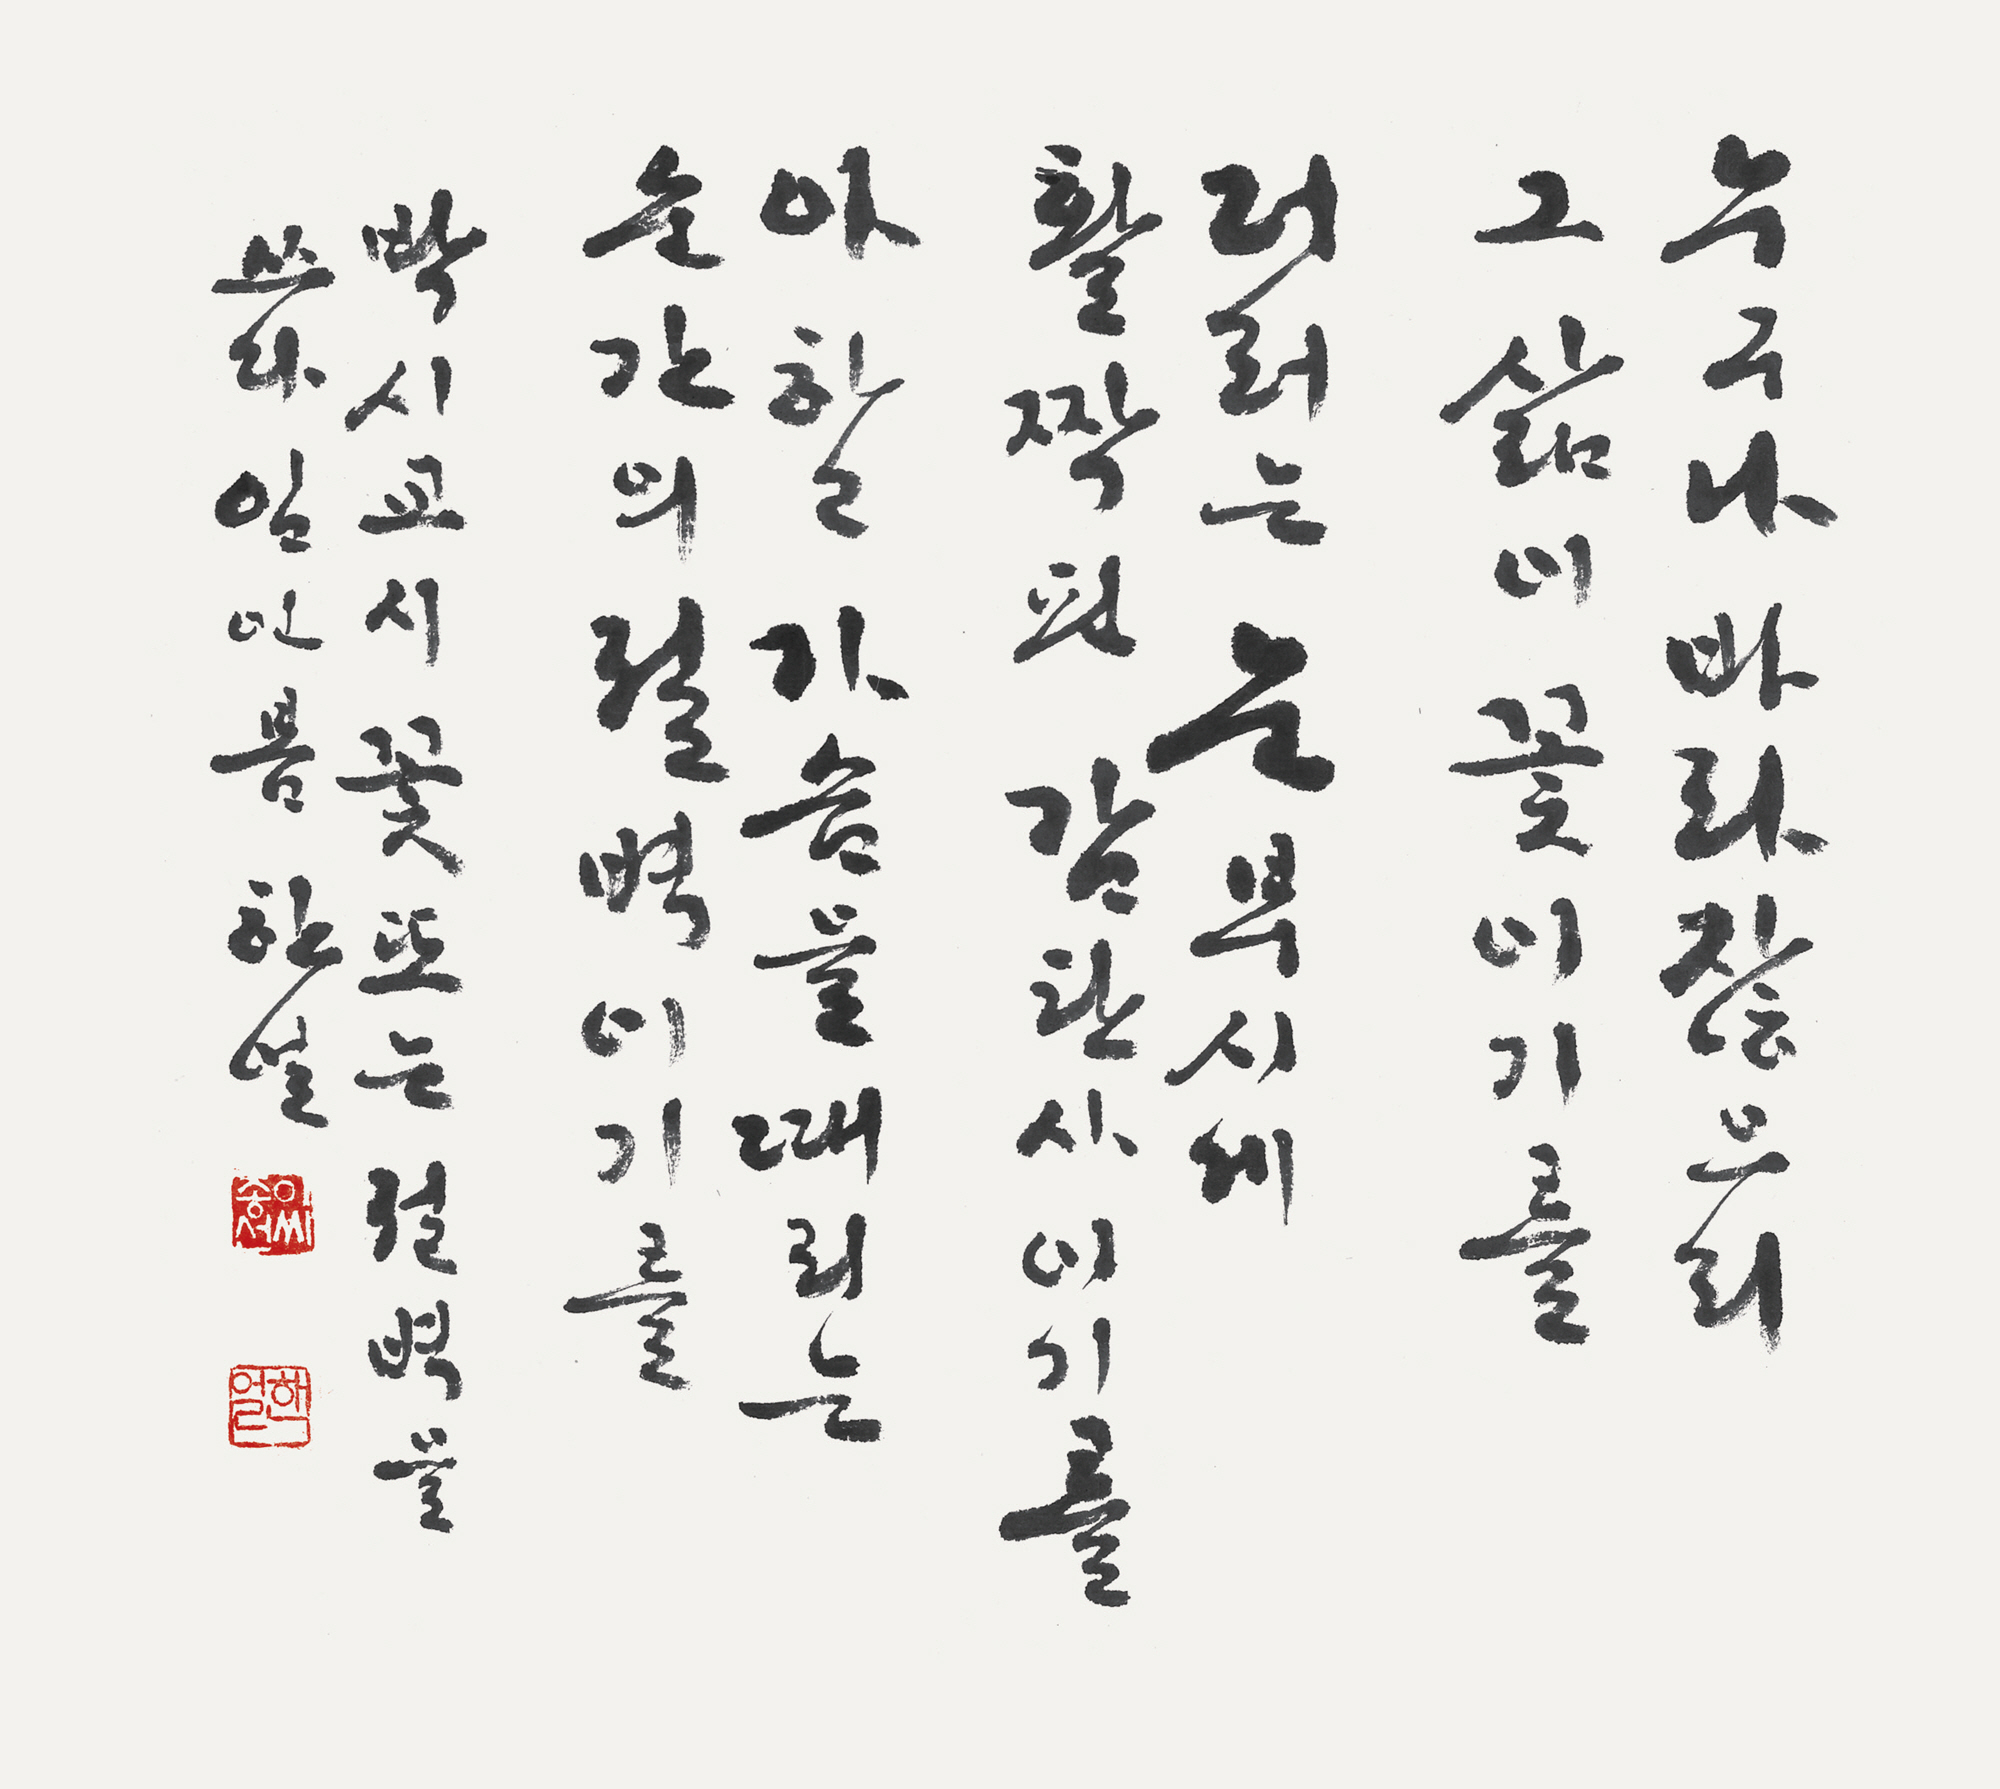 누구나 바라잖으리
그 삶이 꽃이기를
더러는 눈부시게
활짝 핀 감탄사이기를
아 하고 가슴을 때리는
순간의 절벽이기를
박시교 시 꽃 또는 절벽을
쓰다 임인 봄 한얼
한얼